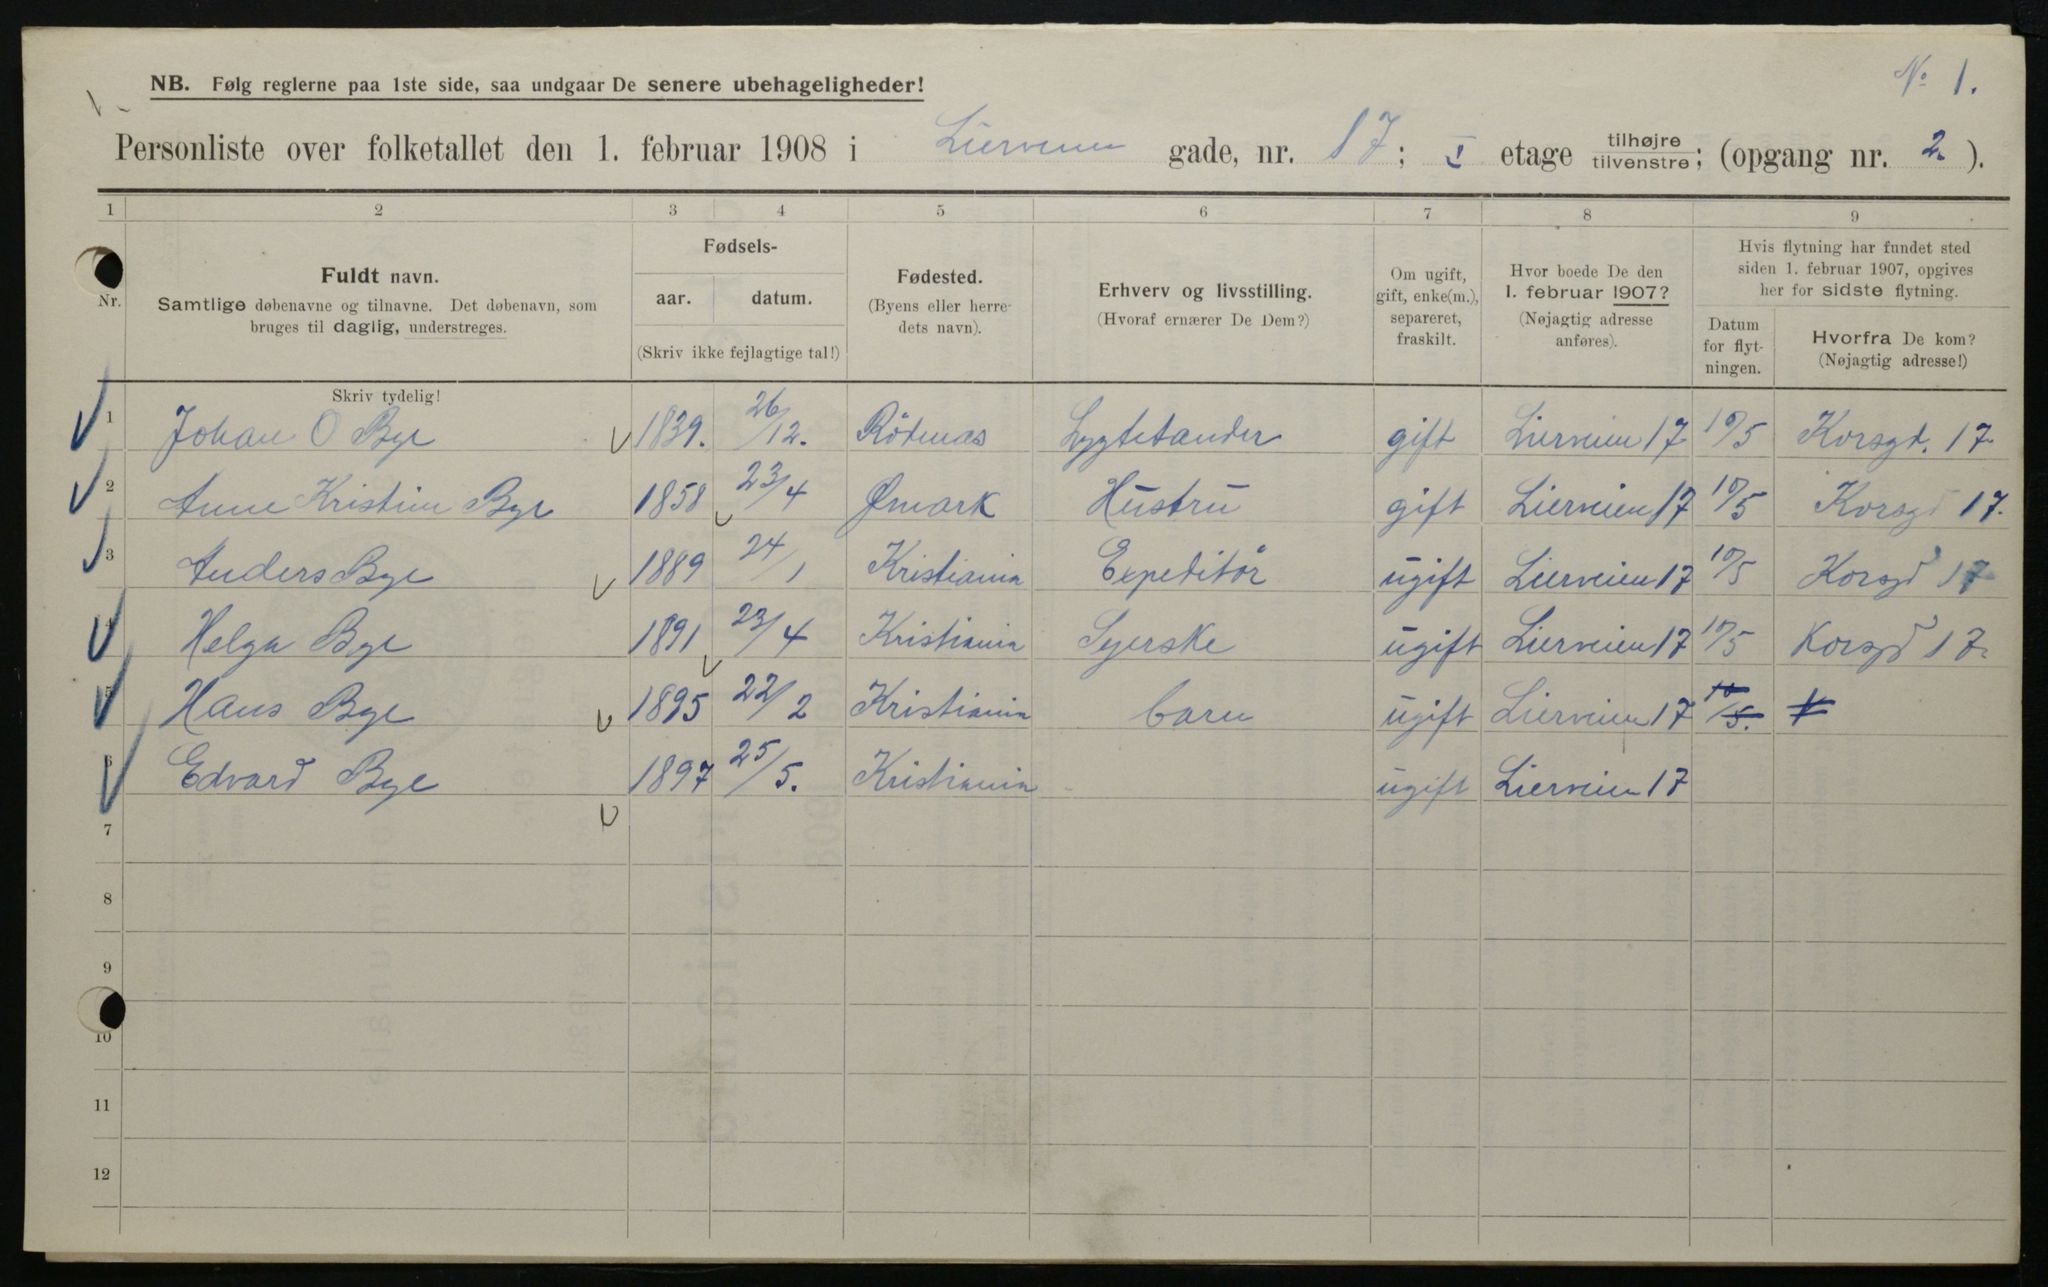 No 1.
NB. Følg reglerne paa 1ste side, saa undgaar De senere ubehageligheder!
Personliste over folketallet den 1. februar 1908 i Lierveien gade, nr. 17; I etage tilhøjre tilvenstre; (opgang nr. 2.).
1 2 3 4 5 6 7 8 9
Nr.
Fuldt navn.
Samtlige døbenavne og tilnavne. Det døbenavn, som
bruges til daglig, understreges.
Skriv tydelig!
Fødsels-
aar. datum.
(Skriv ikke fejlagtige tal!)
Fødested.
(Byens eller herre-
dets navn).
Erhverv og livsstilling.
(Hvoraf ernærer De Dem?)
Om ugift,
gift, enke(m.),
separeret,
fraskilt.
Hvor boede De den
1. februar 1907?
(Nøjagtig adresse
anføres).
Hvis flytning har fundet sted
siden 1. februar 1907, opgives
her for sidste flytning.
Datum
for flyt-
ningen.
Hvorfra De kom?
(Nøjagtig adresse!)
1 Johan O Bye 1839. 26/12. Rödenas Lygtetænder gift Lierveien 17 10/5 Korsgd. 17
2 Anne Kristine Bye 1858 23/4 Ømark Hustru gift Lierveien 17 10/5 Korsgd 17.
3 Anders Bye 1889 24/1 Kristiania Expeditør ugift Lierveien 17 10/5 Korsgd 17
4 Helga Bye 1891 23/4 Kristiania Syerske ugift Lierveien 17 10/5 Korsgd 17.
5 Hans Bye 1895 22/2 Kristiania barn ugift Lierveien 17 10/5.
6 Edvard Bye 1897 25/5. Kristiania ugift Lierveien 17
7
8
9
10
11
12